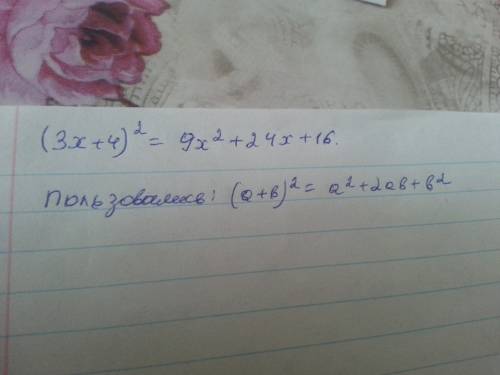 (3x+4)² = 9x²+24x+16.
Пользовались: (a+b)² = a²+2ab+b²